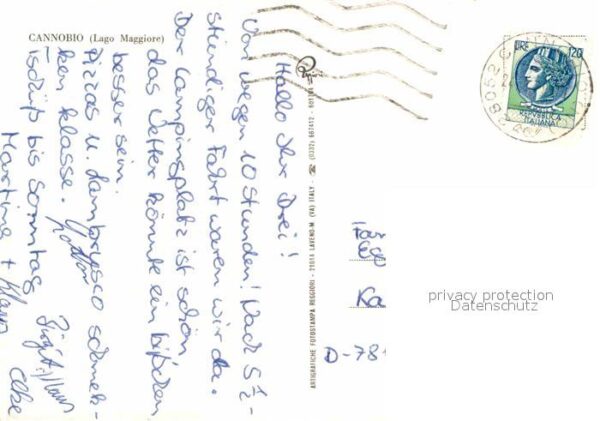 CANNOBIO (Lago Maggiore)
Hallo Ihr Drei!
Von wegen 10 Stunden! Nach 5 1/2-
stündiger Fahrt waren wir da.
Der Campingplatz ist schön
das Wetter könnte ein bißchen
besser sein.
Pizzas u. Lambrusco schmek-
ken klasse.
Tschüß bis Sonntag
Martina +
ARTIGRAFICHE FOTOSTAMPA REGGIORI - 21014 LAVENO-M (VA) ITALY - ☎ (0332) 667412 -
LIRE 120
REPVBBLICA
ITALIANA
Ka
D-781
privacy protection
Datenschutz